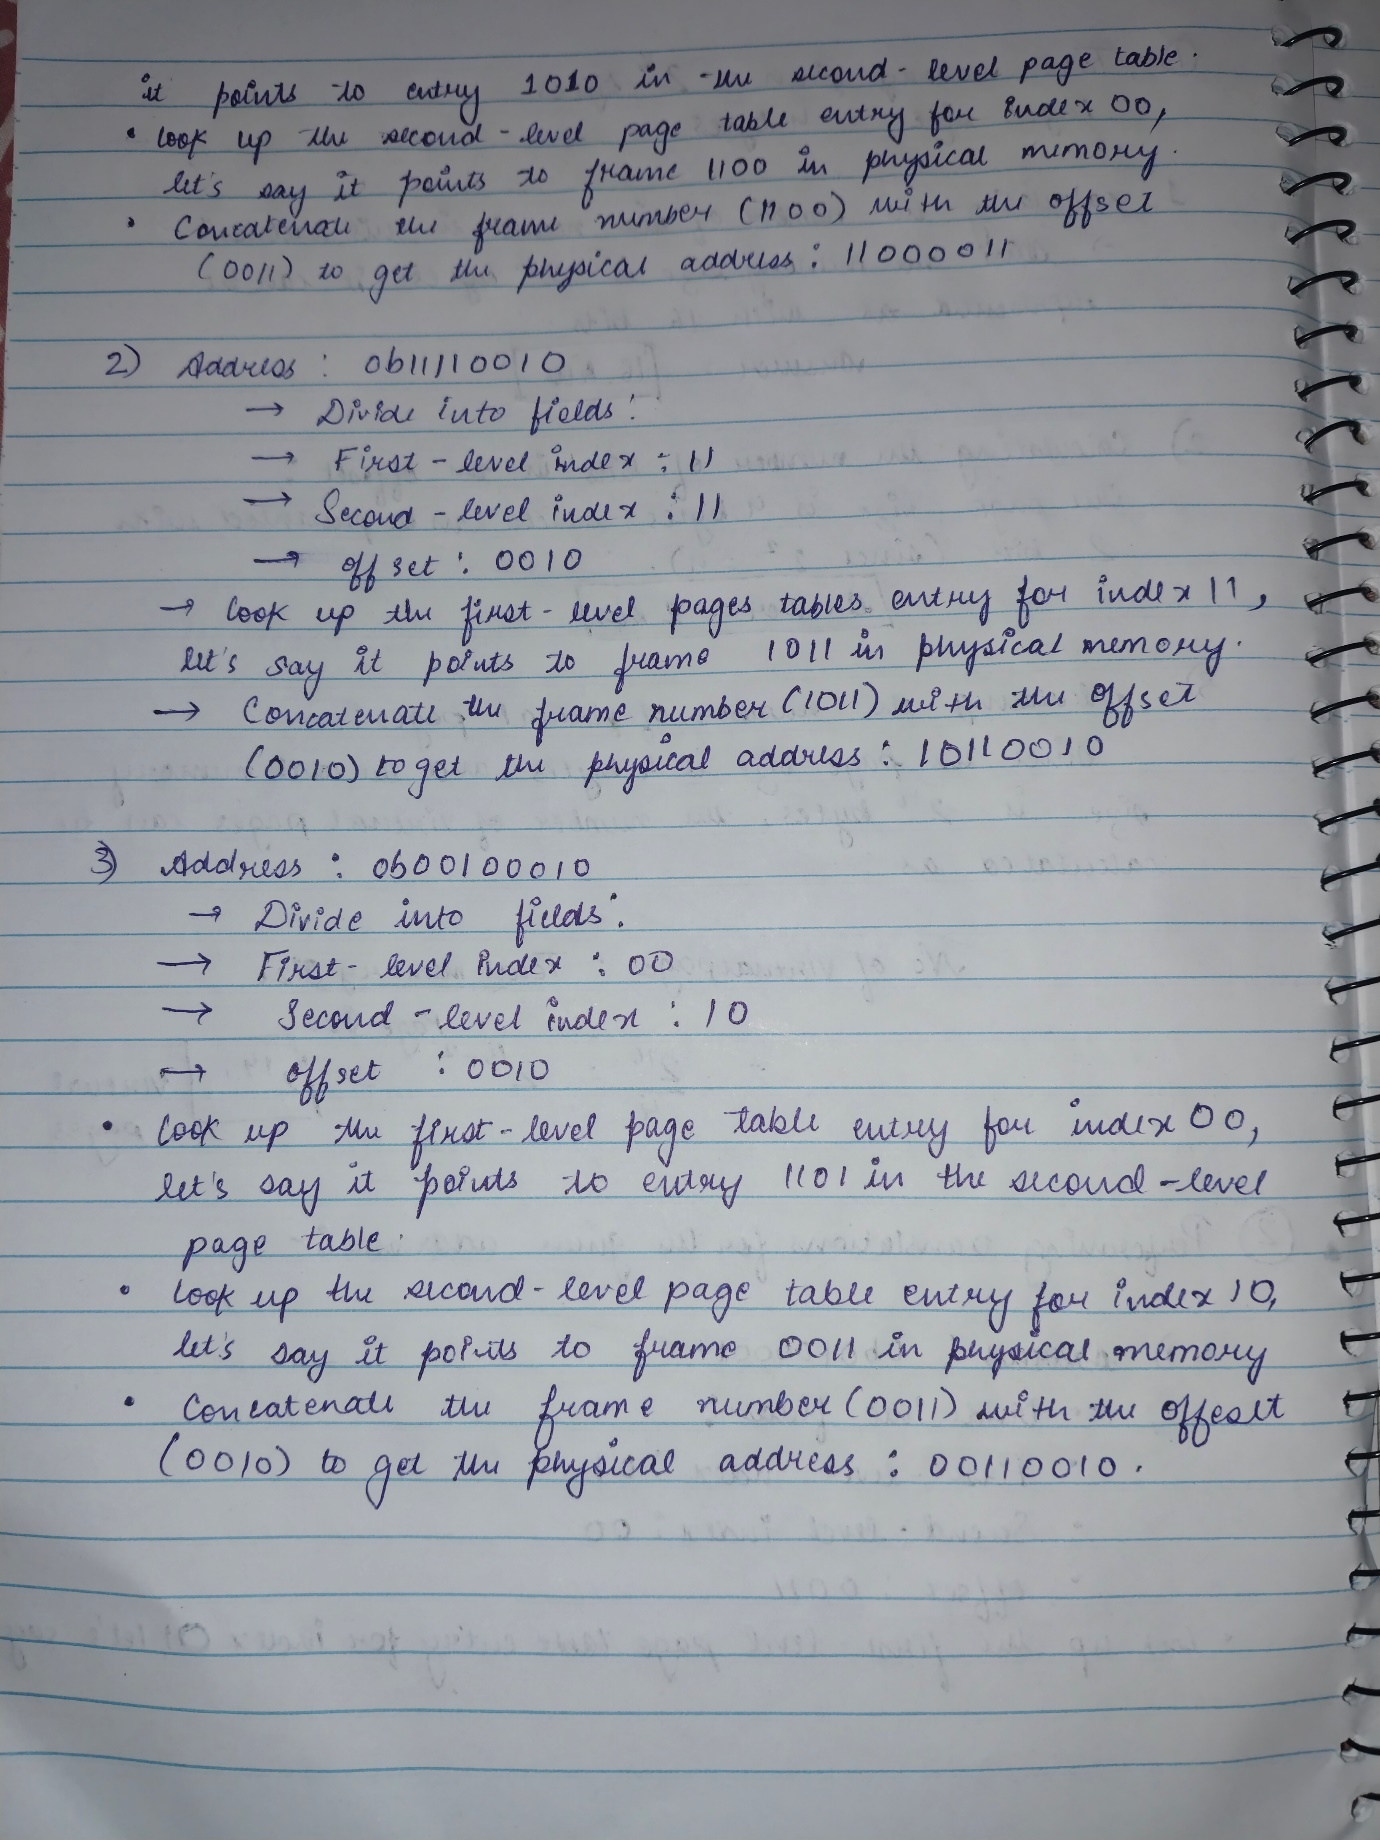 it points to entry 1010 in the second-level page table.
• Look up the second-level page table entry for index 00,
let's say it points to frame 1100 in physical memory.
• Concatenate the frame number (1100) with the offset
(0011) to get the physical address : 11000011
2) Address : 0b11110010
→ Divide into fields :
→ First-level index : 11
→ Second-level index : 11
→ offset : 0010
→ Look up the first-level pages tables entry for index 11,
let's say it points to frame 1011 in physical memory.
→ Concatenate the frame number (1011) with the offset
(0010) to get the physical address : 10110010
3) Address : 0b00100010
→ Divide into fields :
→ First-level index : 00
→ Second-level index : 10
→ offset : 0010
• Look up the first-level page table entry for index 00,
let's say it points to entry 1101 in the second-level
page table.
• Look up the second-level page table entry for index 10,
let's say it points to frame 0011 in physical memory
• Concatenate the frame number (0011) with the offeset
(0010) to get the physical address : 00110010.